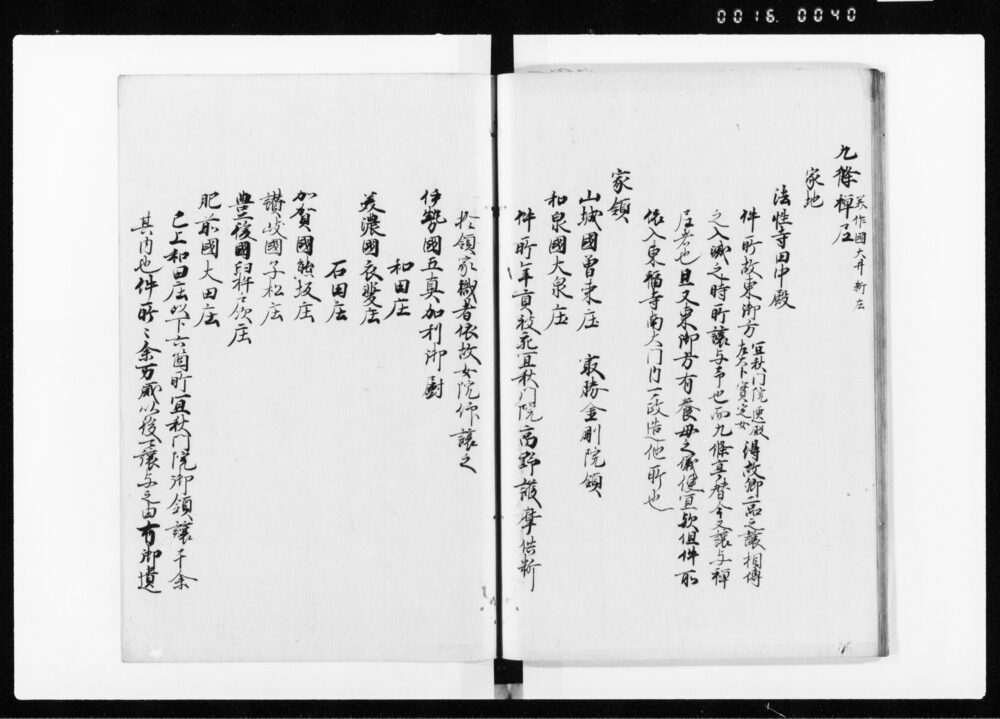 0016.0040
九條禅尼 美作國大井新庄
家地
法性寺田中殿
件所故東御方 宜秋門院 左大臣實定女 得故卿二品之讓相傳
之入滅之時所讓与予也而九條 今又讓与禅
尼者也且又東御方有養母之儀便宜歟但件所
依入東福寺南大門内一改造他所也
家領
山城國曽束庄 最勝金剛院領
和泉國大泉庄
件所年貢 宜秋門院高野護摩供料
於領家職者依故女院仰讓之
伊勢國五真加利御厨
和田庄
美濃國衣斐庄
石田庄
加賀國熊坂庄
讃岐國子松庄
豊後國臼杵戸次庄
肥前國大田庄
已上和田庄以下六箇所宜秋門院御領讓于余
其内也件所〻余万歳以後可讓与之由有御遺